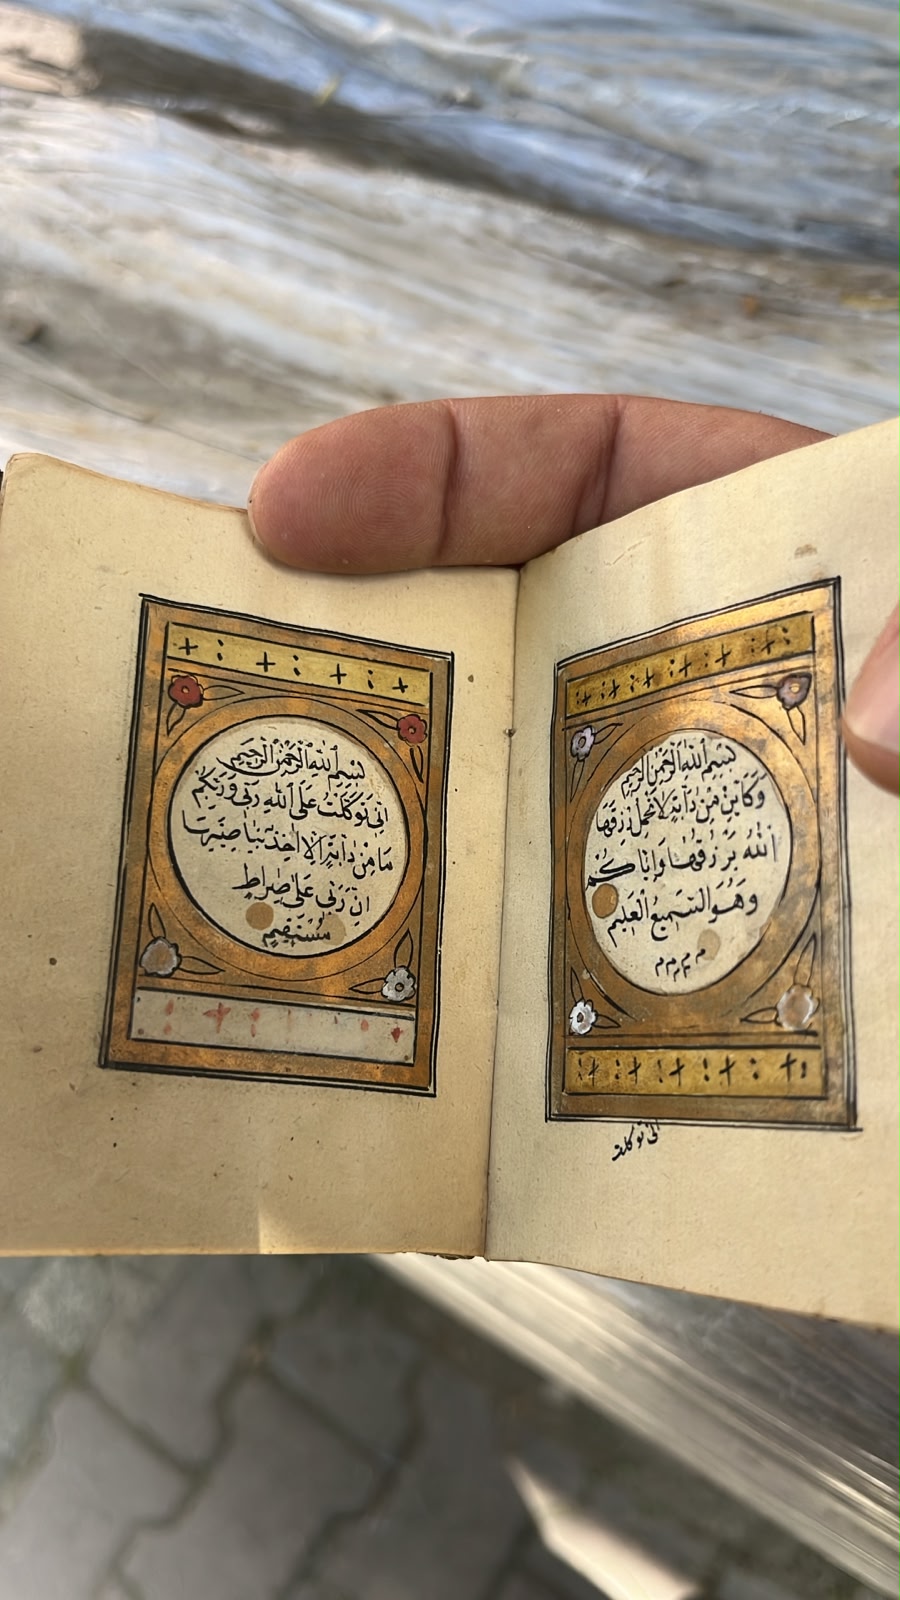 بسم الله الرحمن الرحيم
وكاين من دابة لا تحمل رزقها
الله يرزقها واياكم
وهو السميع العليم
م م م م
انى توكلت
بسم الله الرحمن الرحيم
انى توكلت على الله ربى وربكم
ما من دابة الا هو اخذ بناصيتها
ان ربى على صراط
مستقيم